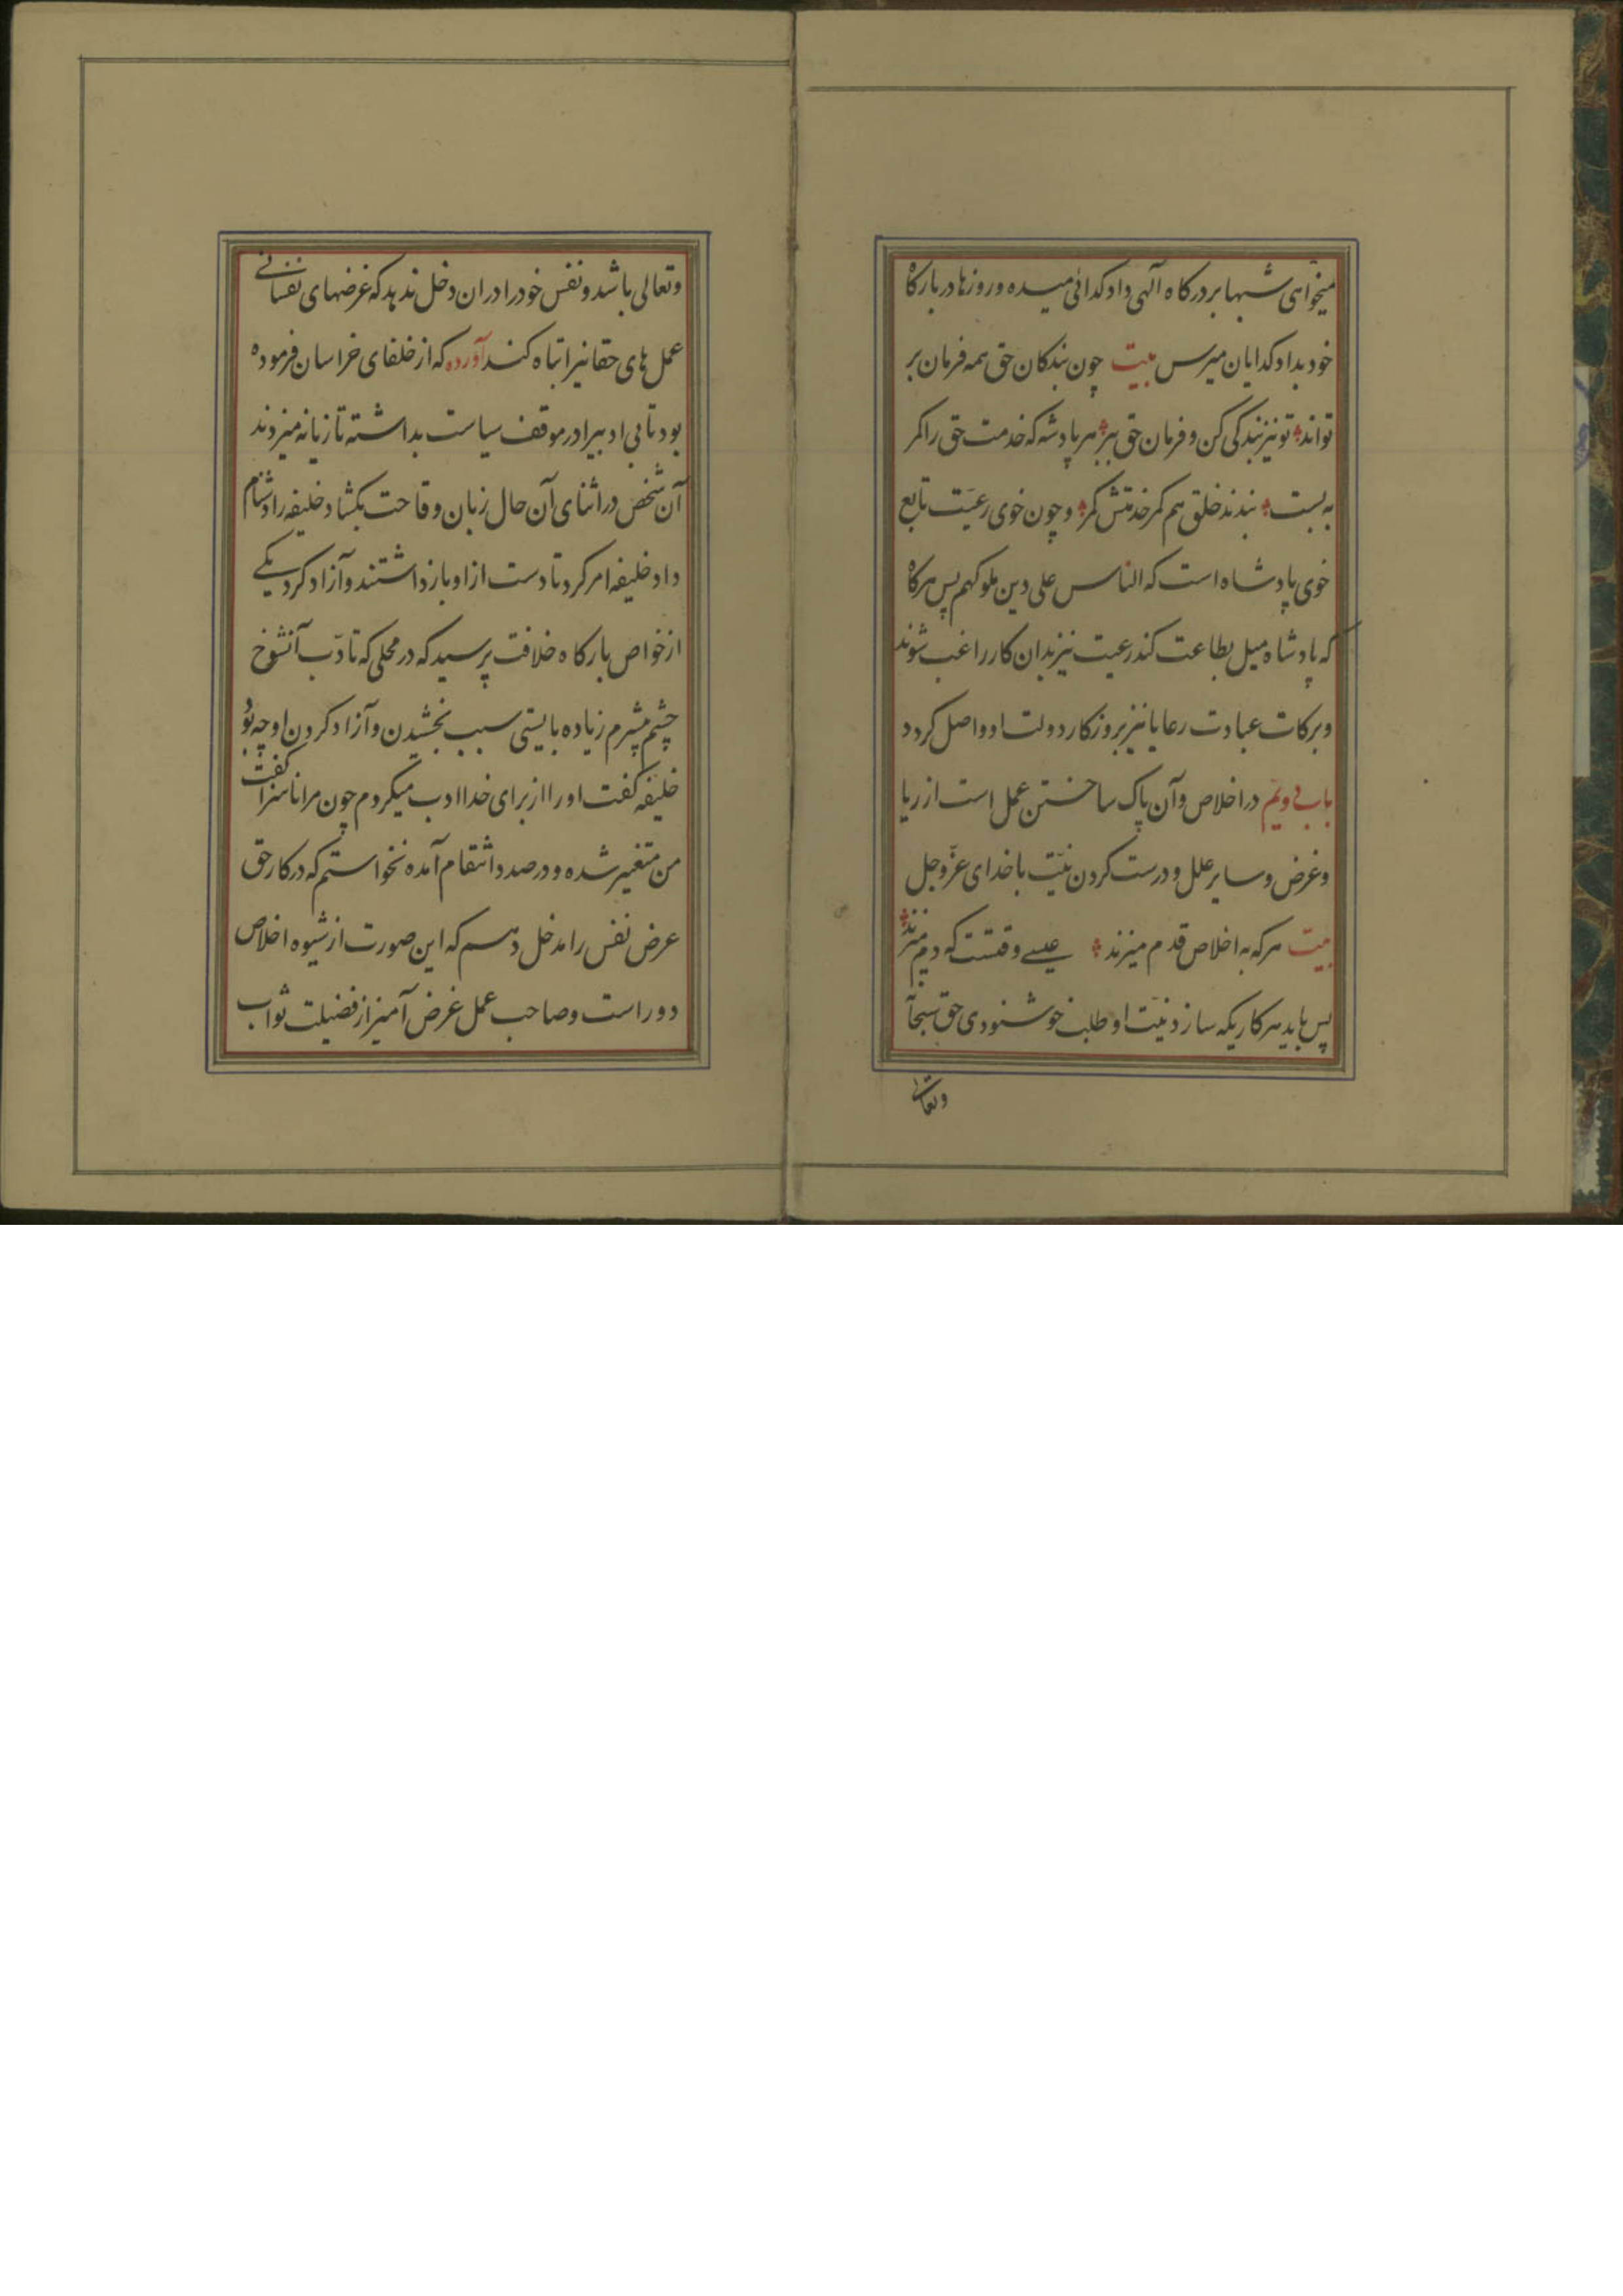 میخواهی شبها بر درکاه آلهی داد کدائی میده و روزها در بارکاه
خود بداد کدایان میرس بیت چون بندکان حق همه فرمان بر
تواند تو نیز بندکی کن و فرمان حق ببر هر پادشه که خدمت حق را کمر
به بست بندند خلق هم کمر خدمتش کمر و چون خوی رعیّت تابع
خوی پادشاه است که الناس علی دین ملوکهم پس هرکاه
که پادشاه میل بطاعت کند رعیت نیز بدان کار راغب شوند
و برکات عبادت رعایا نیز بروزکار دولت او واصل کردد
باب دویّم در اخلاص و آن پاک ساختن عمل است از ریا
و غرض و سایر علل و درست کردن نیّت با خدای عزّ وجل
بیت هرکه به اخلاص قدم میزند عیسی وقتست که دم میزند
پس باید هر کاریکه سازد نیّت او طلب خوشنودی حق سبحآ
وتعالی
وتعالی باشد و نفس خود را در ان دخل ندهد که غرضهای نفسانی
عمل های حقانیرا تباه کند آورده که از خلفای خراسان فرموده
بود تا بی ادبیرا در موقف سیاست بداشته تازیانه میزدند
آن شخص در اثنای آن حال زبان وقاحت بکشاد خلیفه را دشنام
داد خلیفه امر کرد تا دست از او بازداشتند و آزاد کرد یکی
از خواص بارکاه خلافت پرسید که در محلی که تادّب آنشوخ
چشم بیشرم زیاده بایستی سبب بخشیدن و آزاد کردن او چه بود
خلیفه کفت او را از برای خدا ادب میکردم چون مرا ناسزا کفت
من متغییر شده و در صدد انتقام آمده نخواستم که در کار حق
عرض نفس را مدخل دهم که این صورت از شیوه اخلاص
دور است و صاحب عمل غرض آمیز از فضیلت ثواب